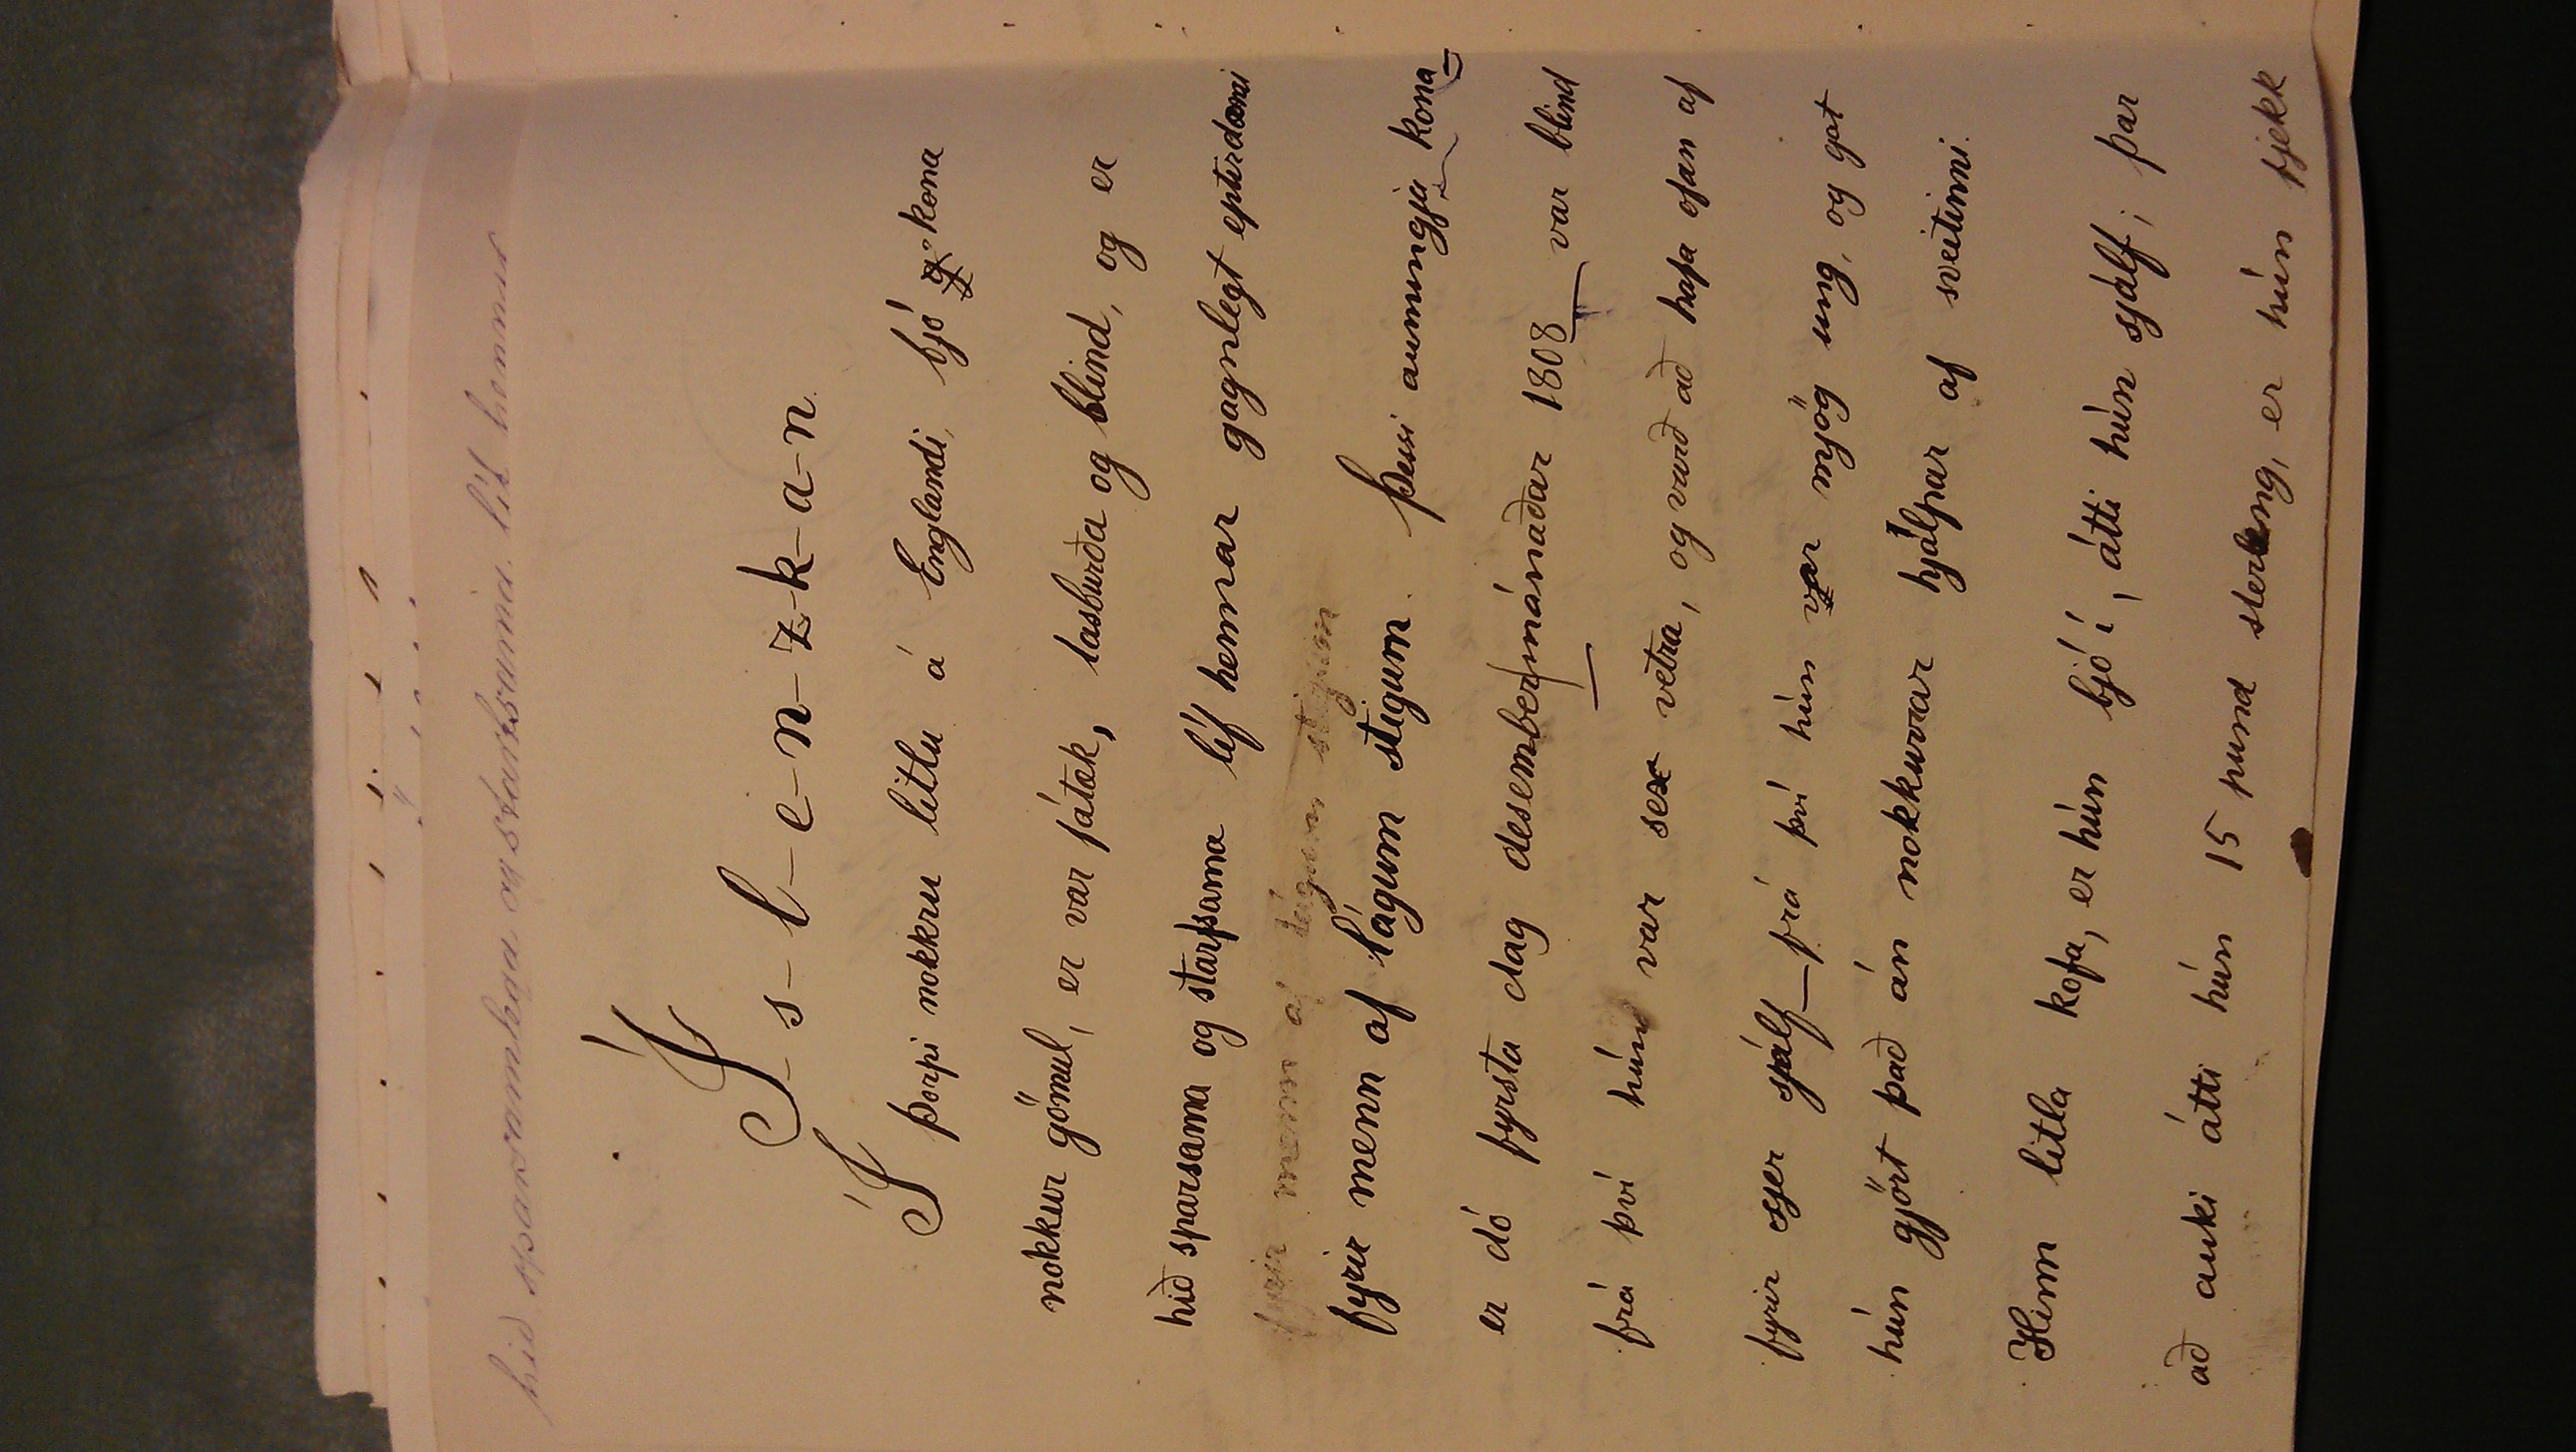 hið sparsamlega og starfsama líf hennar
Í-s-l-e-n-z-k-a-n.
Í þorpi nokkru litlu á Englandi, bjó kona
nokkur gömul, er var fátæk, lasburða og blind, og er
hið sparsama og starfsama líf hennar gagnlegt eptirdæmi
fyrir menn af lágum stigum
fyrir menn af lágum stigum. Þessi aumingja kona
er dó fyrsta dag desembermánaðar 1808 var blind
frá því hún var sex vetra, og varð að hafa ofan af
fyrir sjer sjálf frá því hún var mjög ung, og gat
hún gjört það án nokkurrar hjálpar af sveitinni.
Hinn litla kofa, er hún bjó í, átti hún sjálf; þar
að auki átti hún 15 pund sterling, er hún fjekk